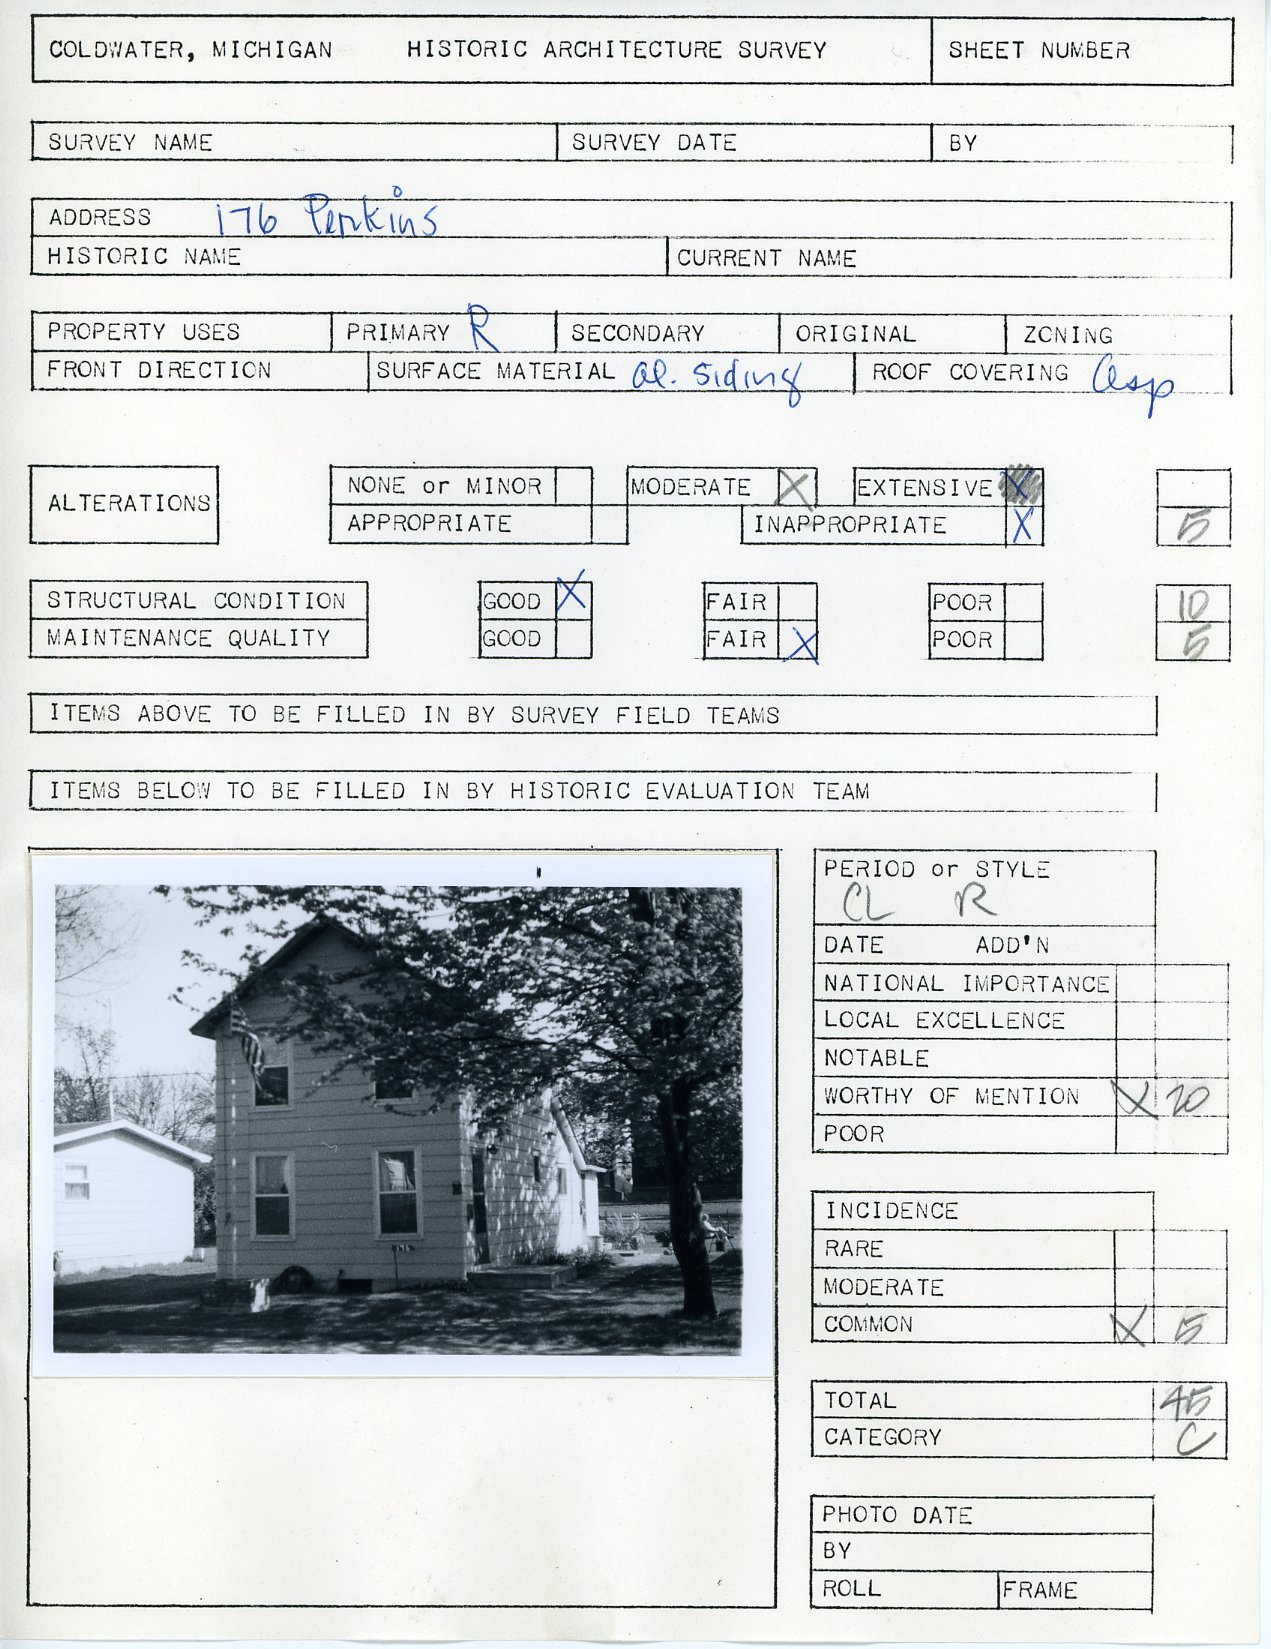 COLDWATER, MICHIGAN HISTORIC ARCHITECTURE SURVEY SHEET NUMBER
SURVEY NAME SURVEY DATE BY
ADDRESS 176 Perkins
HISTORIC NAME CURRENT NAME
PROPERTY USES PRIMARY R SECONDARY ORIGINAL ZONING
FRONT DIRECTION SURFACE MATERIAL al. siding ROOF COVERING Asp
ALTERATIONS NONE or MINOR MODERATE X EXTENSIVE X
APPROPRIATE INAPPROPRIATE X 5
STRUCTURAL CONDITION GOOD X FAIR POOR 10
MAINTENANCE QUALITY GOOD FAIR X POOR 5
ITEMS ABOVE TO BE FILLED IN BY SURVEY FIELD TEAMS
ITEMS BELOW TO BE FILLED IN BY HISTORIC EVALUATION TEAM
PERIOD or STYLE
CL R
DATE ADD'N
NATIONAL IMPORTANCE
LOCAL EXCELLENCE
NOTABLE
WORTHY OF MENTION X 20
POOR
INCIDENCE
RARE
MODERATE
COMMON X 5
TOTAL 45
CATEGORY C
PHOTO DATE
BY
ROLL FRAME